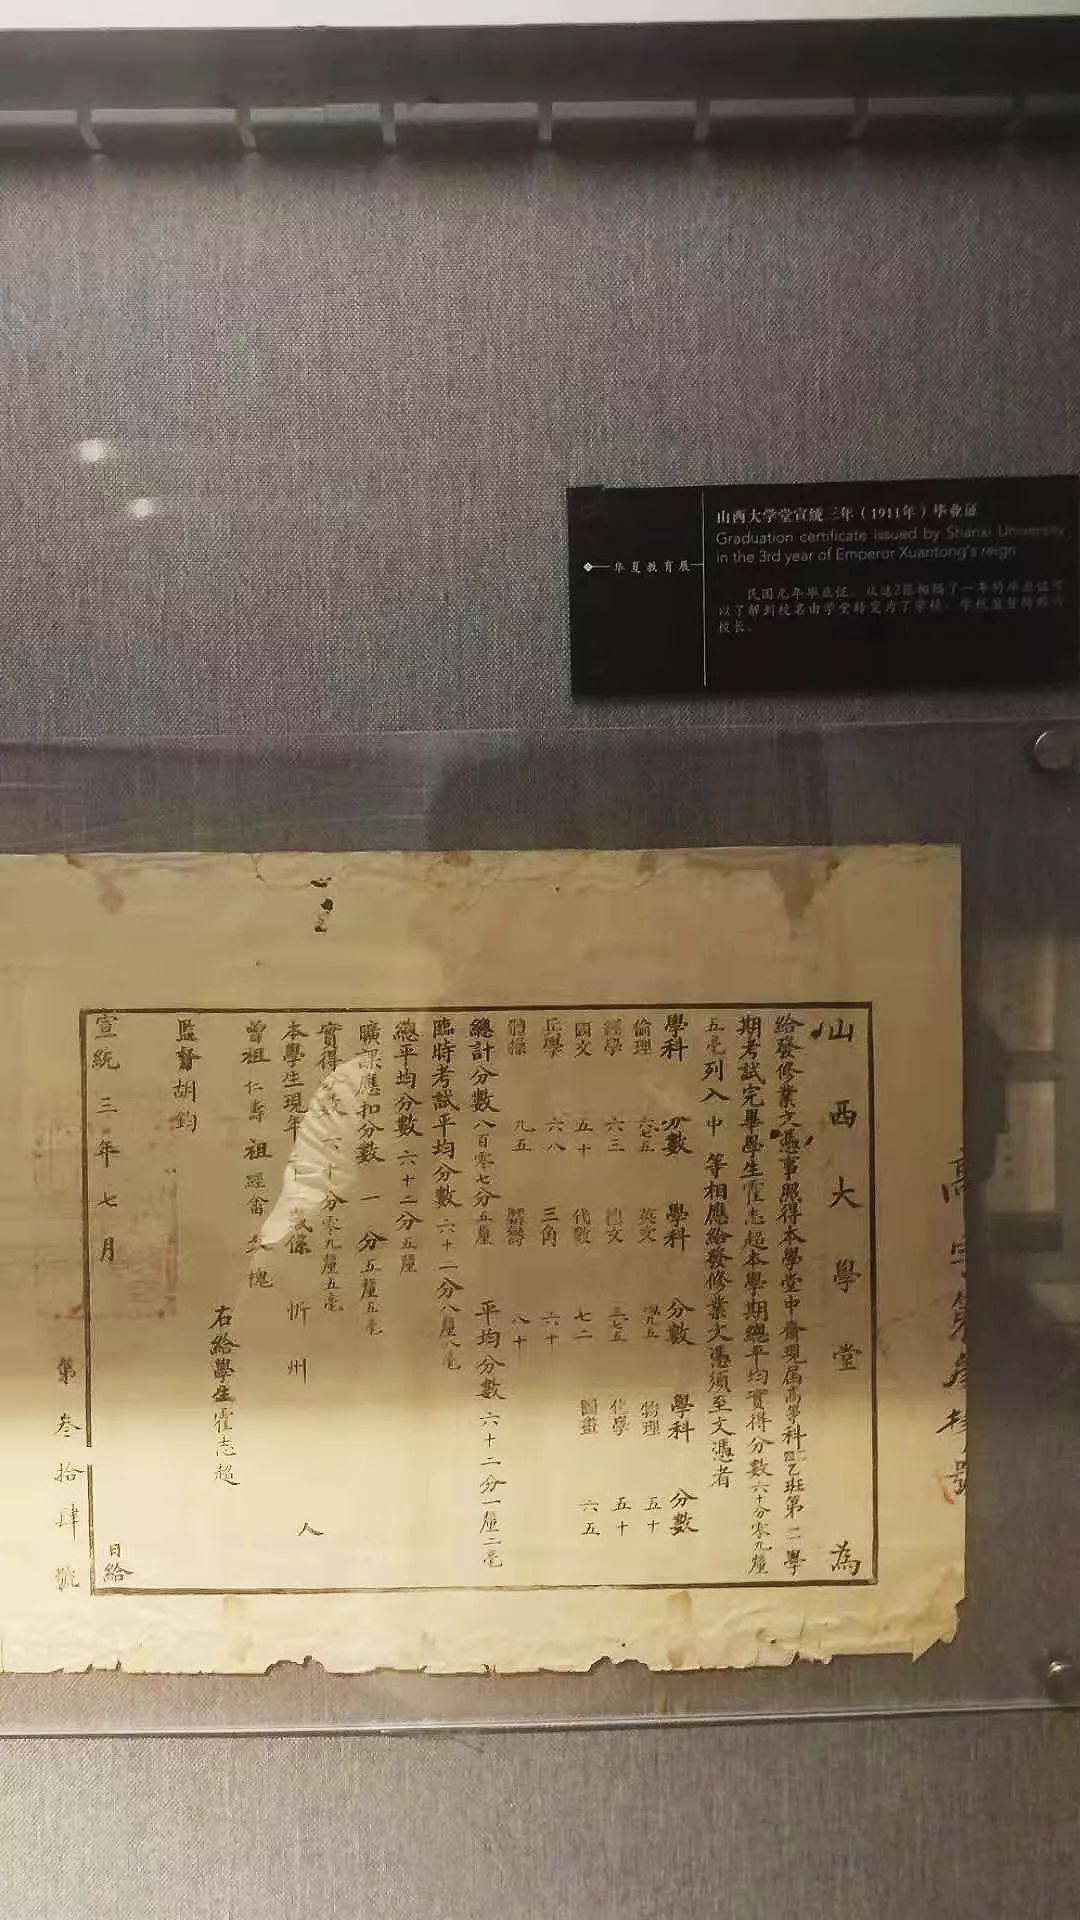 山西大学堂宣统三年（1911年）毕业证
Graduation certificate issued by Shanxi University
in the 3rd year of Emperor Xuantong's reign
华夏教育展
民国元年毕业证。从这2张相隔了一年的毕业证可
以了解到校名由学堂转变为了学校，学校监督转称为
校长。
山西大學堂 為
給發修業文憑事照得本學堂中齋現届高等科乙班第二學
期考試完畢學生霍志超本學期總平均實得分數六十分零九釐
五毫列入中等相應給發修業文憑須至文憑者
學科 分數 學科 分數 學科 分數
倫理 六七五 英文 物理 五十
經學 六三 三七五 化學 五十
國文 五十 代數 七二 圖畫 六五
兵學 六八 三角 六十
體操 九五 八十
總計分數八百零七分五釐 平均分數六十二分一釐二毫
臨時考試平均分數六十二分八釐八毫
總平均分數六十二分五釐
曠課應扣分數一分五釐五毫
實得 六十分零九釐五毫
本學生現年 歲係忻州人
曾祖仁壽 祖經畬 槐
右給學生霍志超
監督胡鈞
宣統三年七月 日給
第叁拾肆號